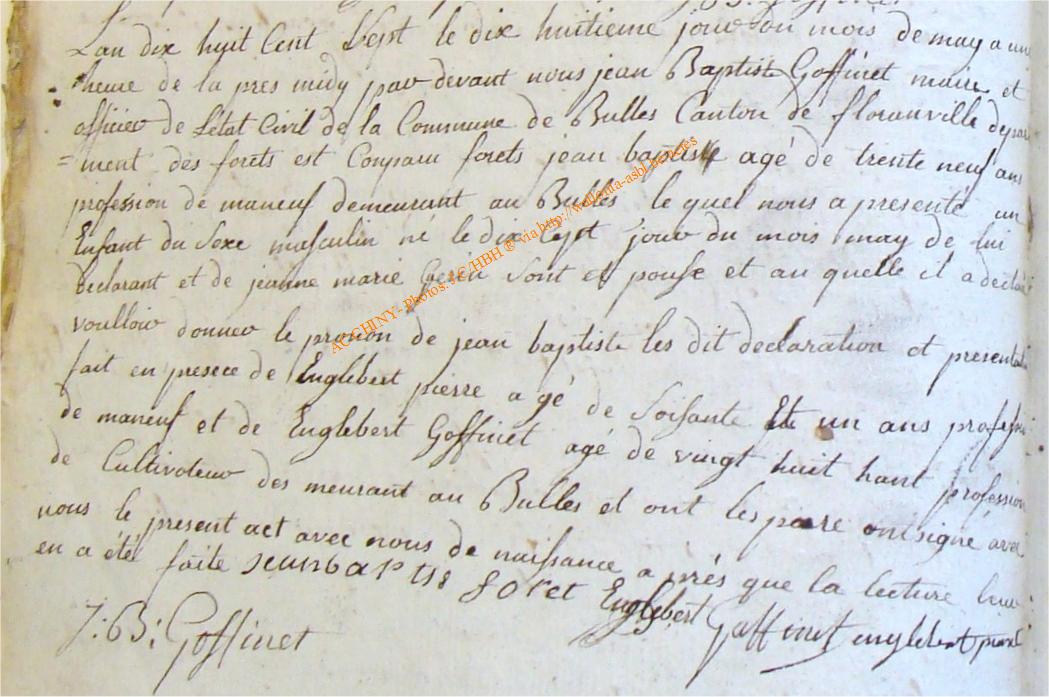 Lan dix huit Cent Sept le dix huitieme jour du mois de may a une
heure de la pres midy par devant nous jean Baptiste Goffinet maire et
officier de Letat Civil de la Commune de Bulles Canton de floranville depar
= ment des forets est Comparu forets jean baptiste agé de trente neuf ans
profession de maneuf demeurant au Bulles le quel nous a presenté un
Enfant du Sexe masculin né le dix Sept jour du mois may de lui
declarant et de jeanne marie sont et pouse et au quelle il a declaré
voulloir donner le pronon de jean baptiste les dit declaration et presentation
fait en presece de Englebert pierre a gé de Soisante et un ans profession
de maneuf et de Englebert Goffinet agé de vingt huit hant profession
de Cultivateur des meurant au Bulles et ont les pere ont signé avec
nous le present act avec nous de naissance a prés que la lecture leur
en a été faite jeanbaptise foret Englebert Goffinet englebert pierre
J: B: Goffinet
AC CHINY- Photos. sC/HBH ® via http://wallonia-asbl.be/actes